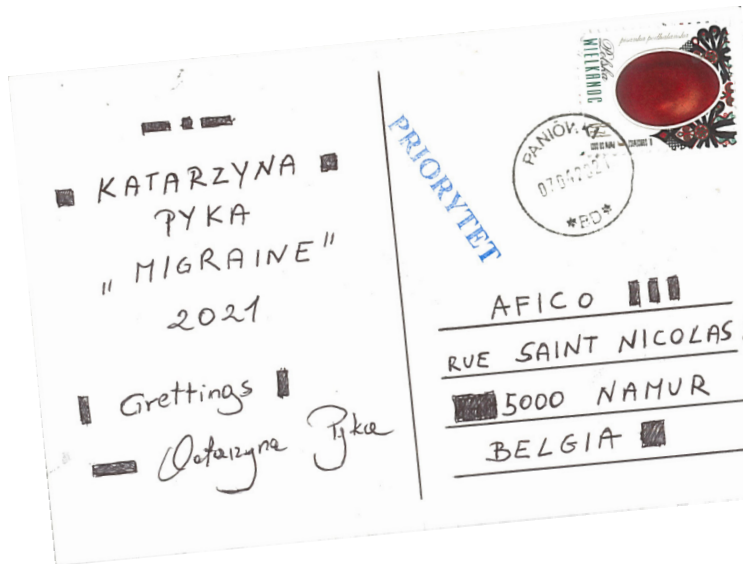 KATARZYNA
PYKA
„MIGRAINE"
2021
Grettings
Katarzyna Pyka
PRIORYTET
pisanka podlaska
Polska
WIELKANOC
PANIÓWKI
07042021
*BD*
AFICO
RUE SAINT NICOLAS
5000 NAMUR
BELGIA